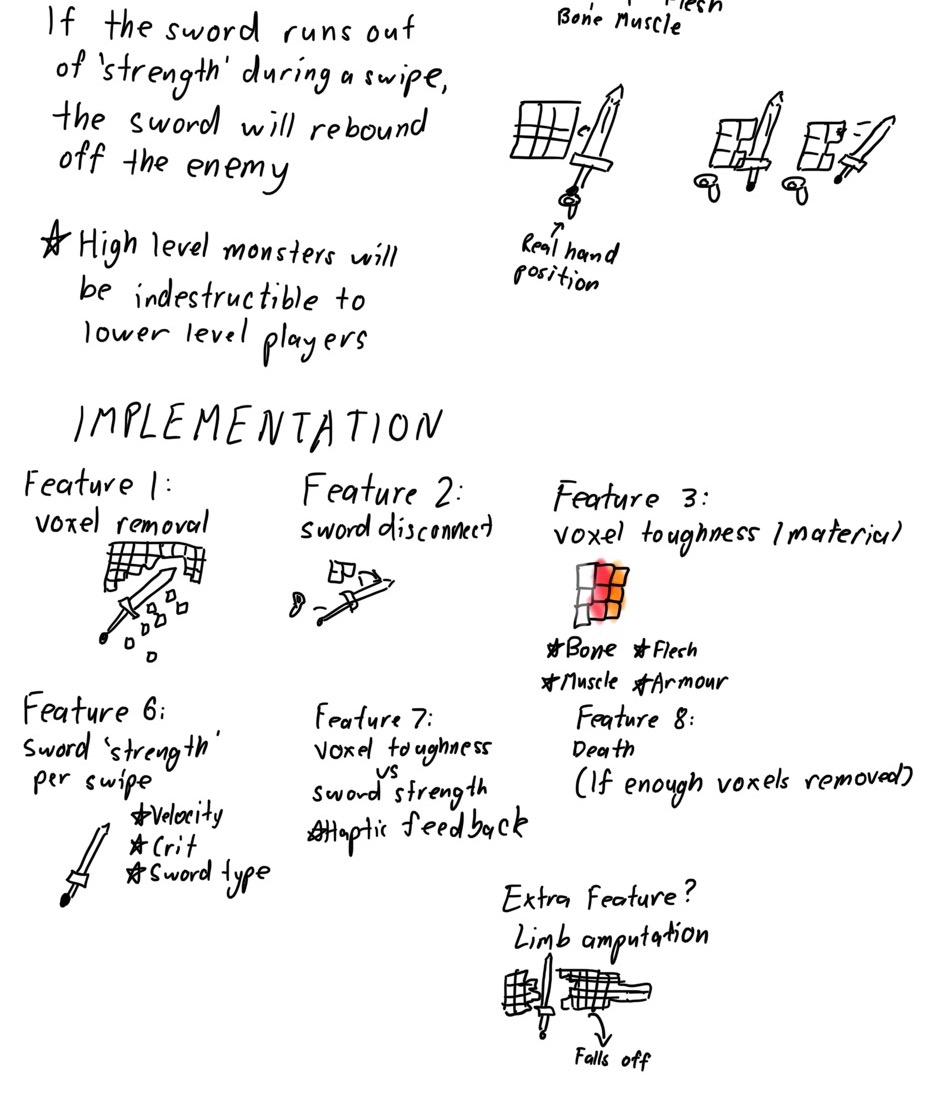 Flesh
Bone Muscle
If the sword runs out
of 'strength' during a swipe,
the sword will rebound
off the enemy
Real hand
position
☆ High level monsters will
be indestructible to
lower level players
IMPLEMENTATION
Feature 1:
voxel removal
Feature 2:
sword disconnect
Feature 3:
voxel toughness / material
☆Bone ☆Flesh
☆Muscle ☆Armour
Feature 6:
Sword 'strength'
per swipe
☆Velocity
☆Crit
☆Sword type
Feature 7:
voxel toughness
vs
sword strength
☆Haptic feedback
Feature 8:
Death
(If enough voxels removed)
Extra Feature?
Limb amputation
Falls off